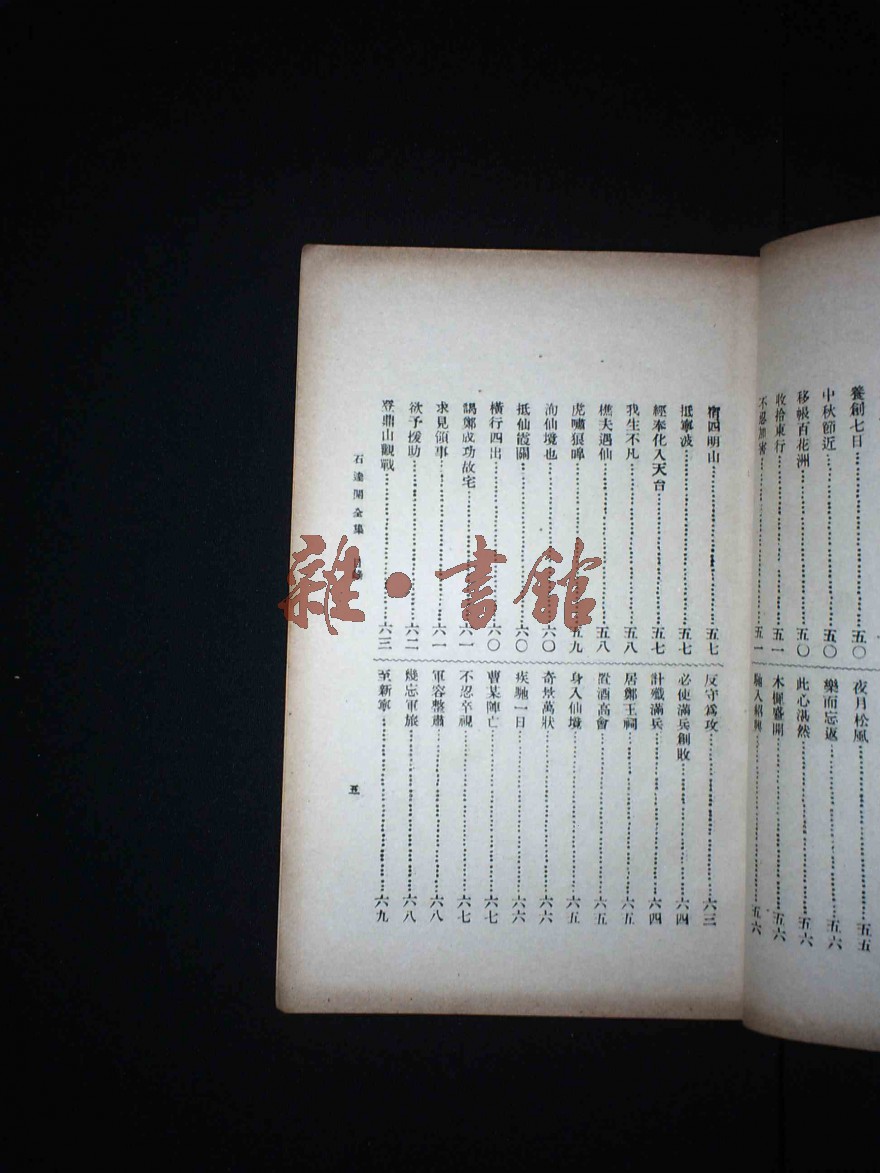 養創七日⋯⋯五〇
中秋節近⋯⋯五〇
移帳百花洲⋯⋯五〇
收拾東行⋯⋯五一
不忍加害⋯⋯五一
夜月松風⋯⋯五五
樂而忘返⋯⋯五六
此心湛然⋯⋯五六
木樨盛開⋯⋯五六
馳入紹興⋯⋯五六
宿四明山⋯⋯五七
抵寧波⋯⋯五七
經奉化入天台⋯⋯五七
我生不凡⋯⋯五八
樵夫遇仙⋯⋯五八
虎嘯狼嘷⋯⋯五九
洵仙境也⋯⋯六〇
抵仙霞關⋯⋯六〇
橫行四出⋯⋯六〇
謁鄭成功故宅⋯⋯六一
求見領事⋯⋯六一
欲予援助⋯⋯六二
登鼎山觀戰⋯⋯六三
反守為攻⋯⋯六三
必使滿兵創敗⋯⋯六四
計殲滿兵⋯⋯六四
居鄭王祠⋯⋯六五
置酒高會⋯⋯六五
身入仙境⋯⋯六五
奇景萬狀⋯⋯六六
疾馳一日⋯⋯六六
曹某陣亡⋯⋯六七
不忍卒視⋯⋯六七
軍容整肅⋯⋯六八
幾忘軍旅⋯⋯六八
至新寧⋯⋯六九
石達開全集 目錄
五
雜·書館